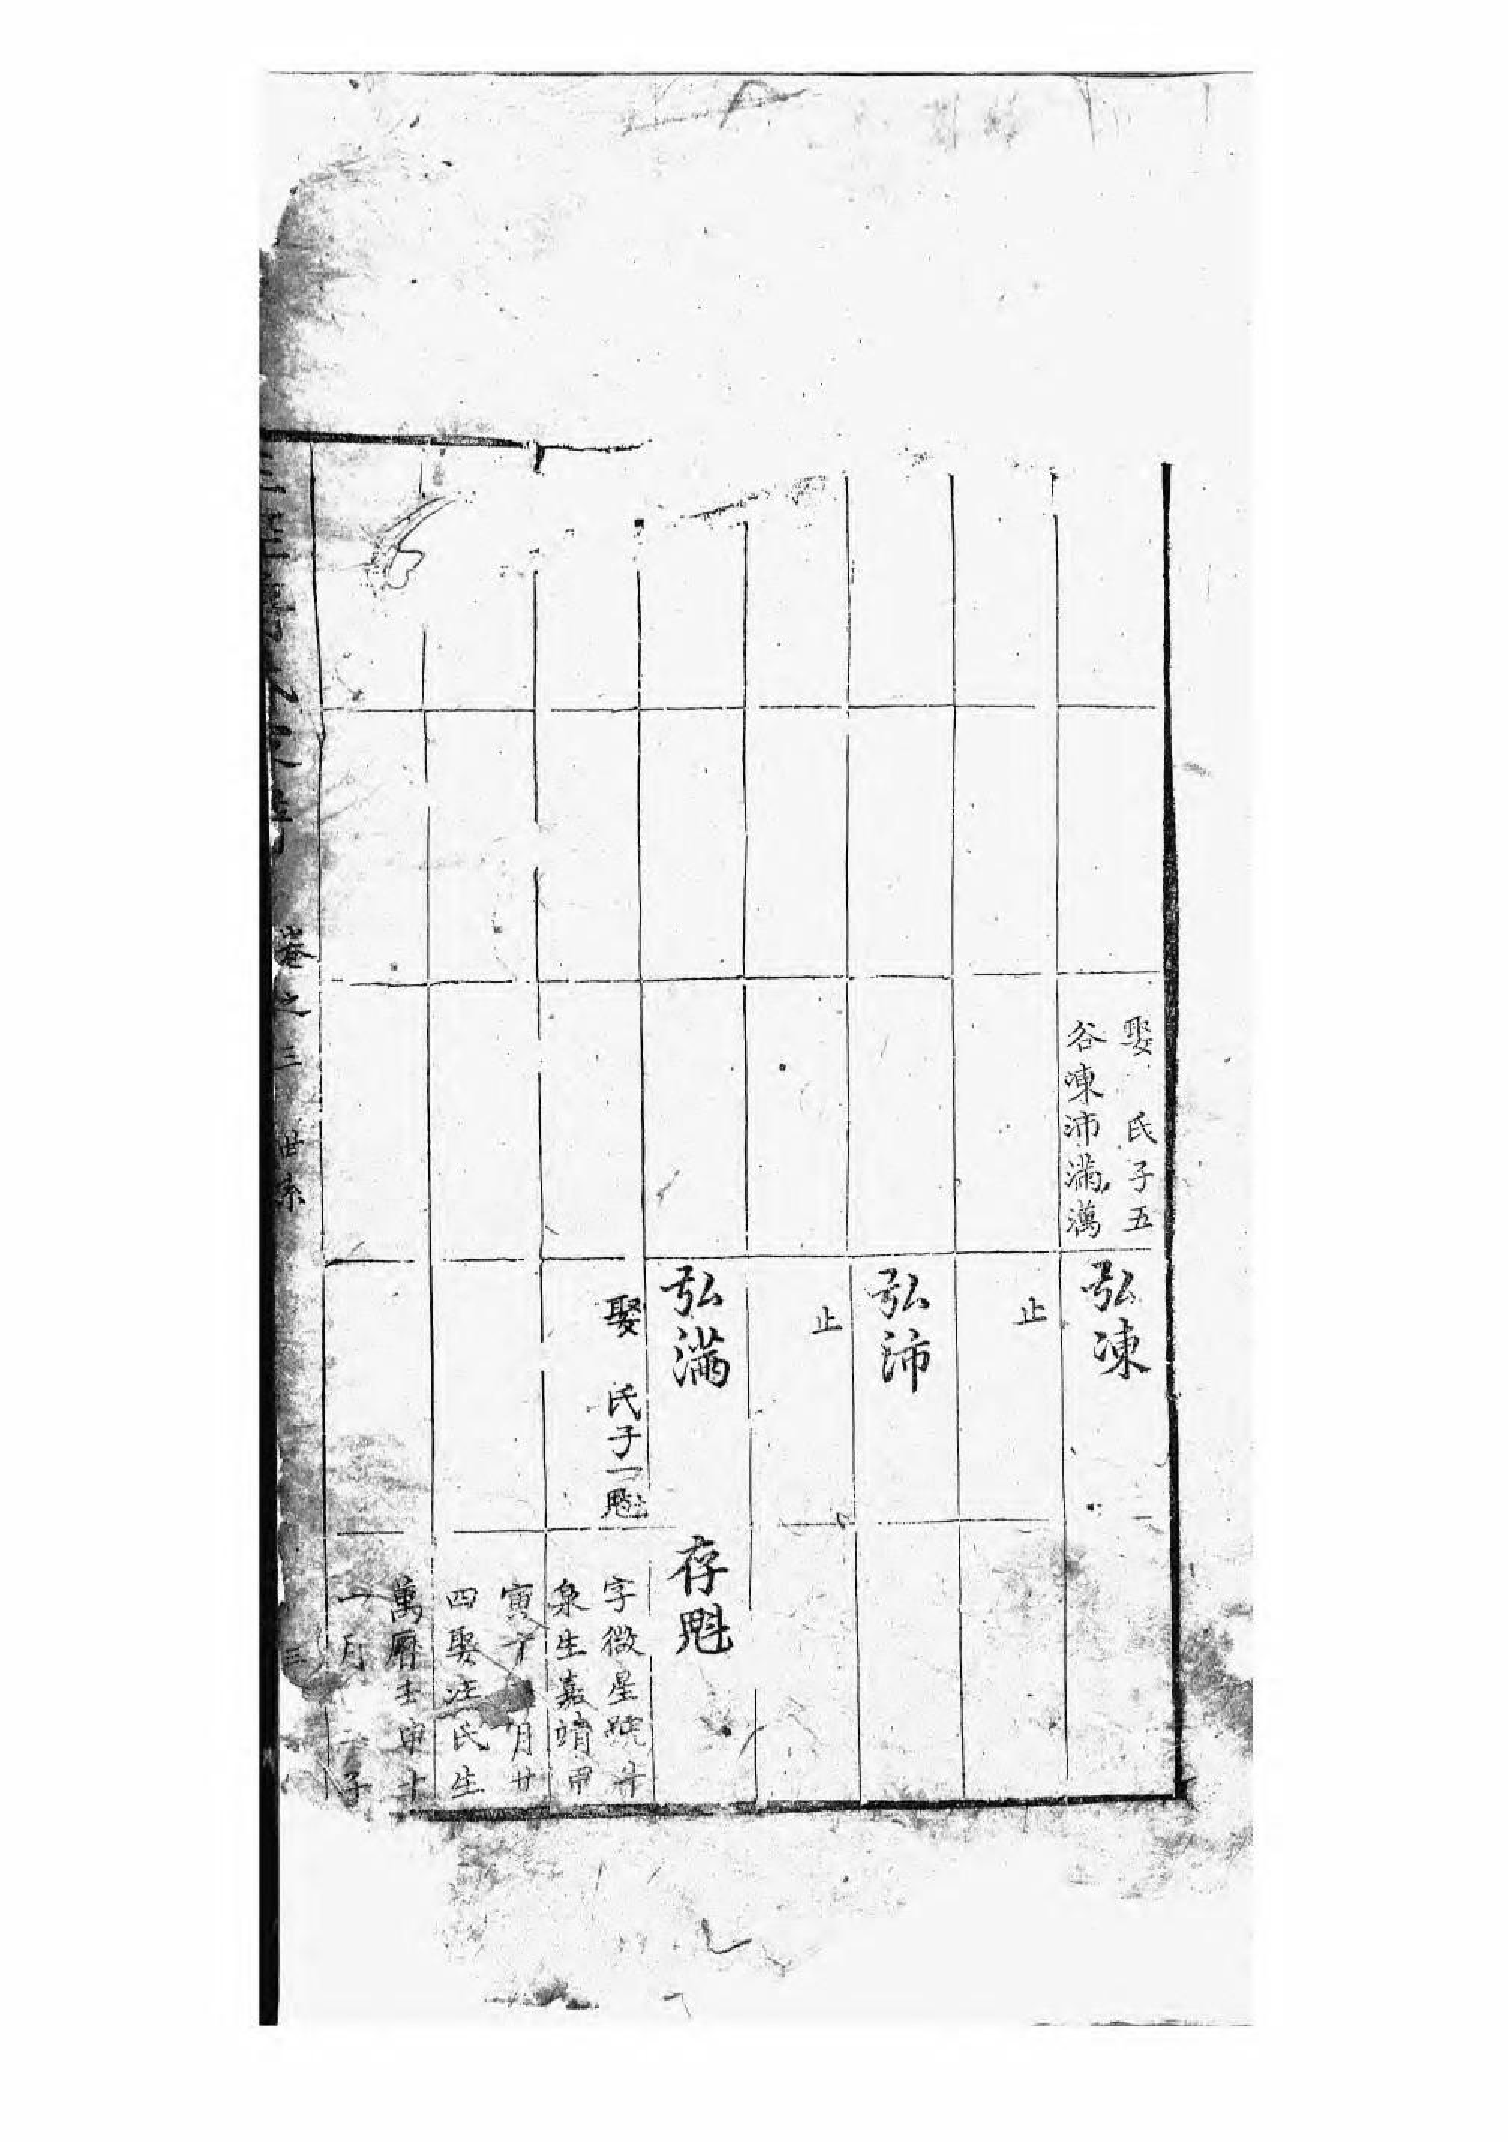 娶　氏子五
谷凍沛滿澫
弘凍
止
弘沛
止
弘滿
娶　氏子一魁
存魁
字微星號井
泉生嘉靖甲
寅十月廿
四娶汪氏生
萬曆壬申十
一月　子
卷之三　世系
三